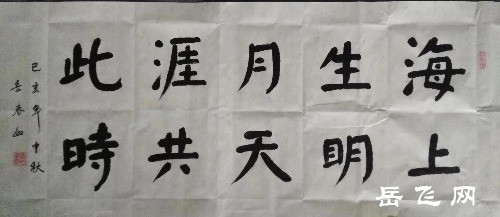 海上
生明
月天
涯共
此時
己亥年中秋
岳春如
岳飞网